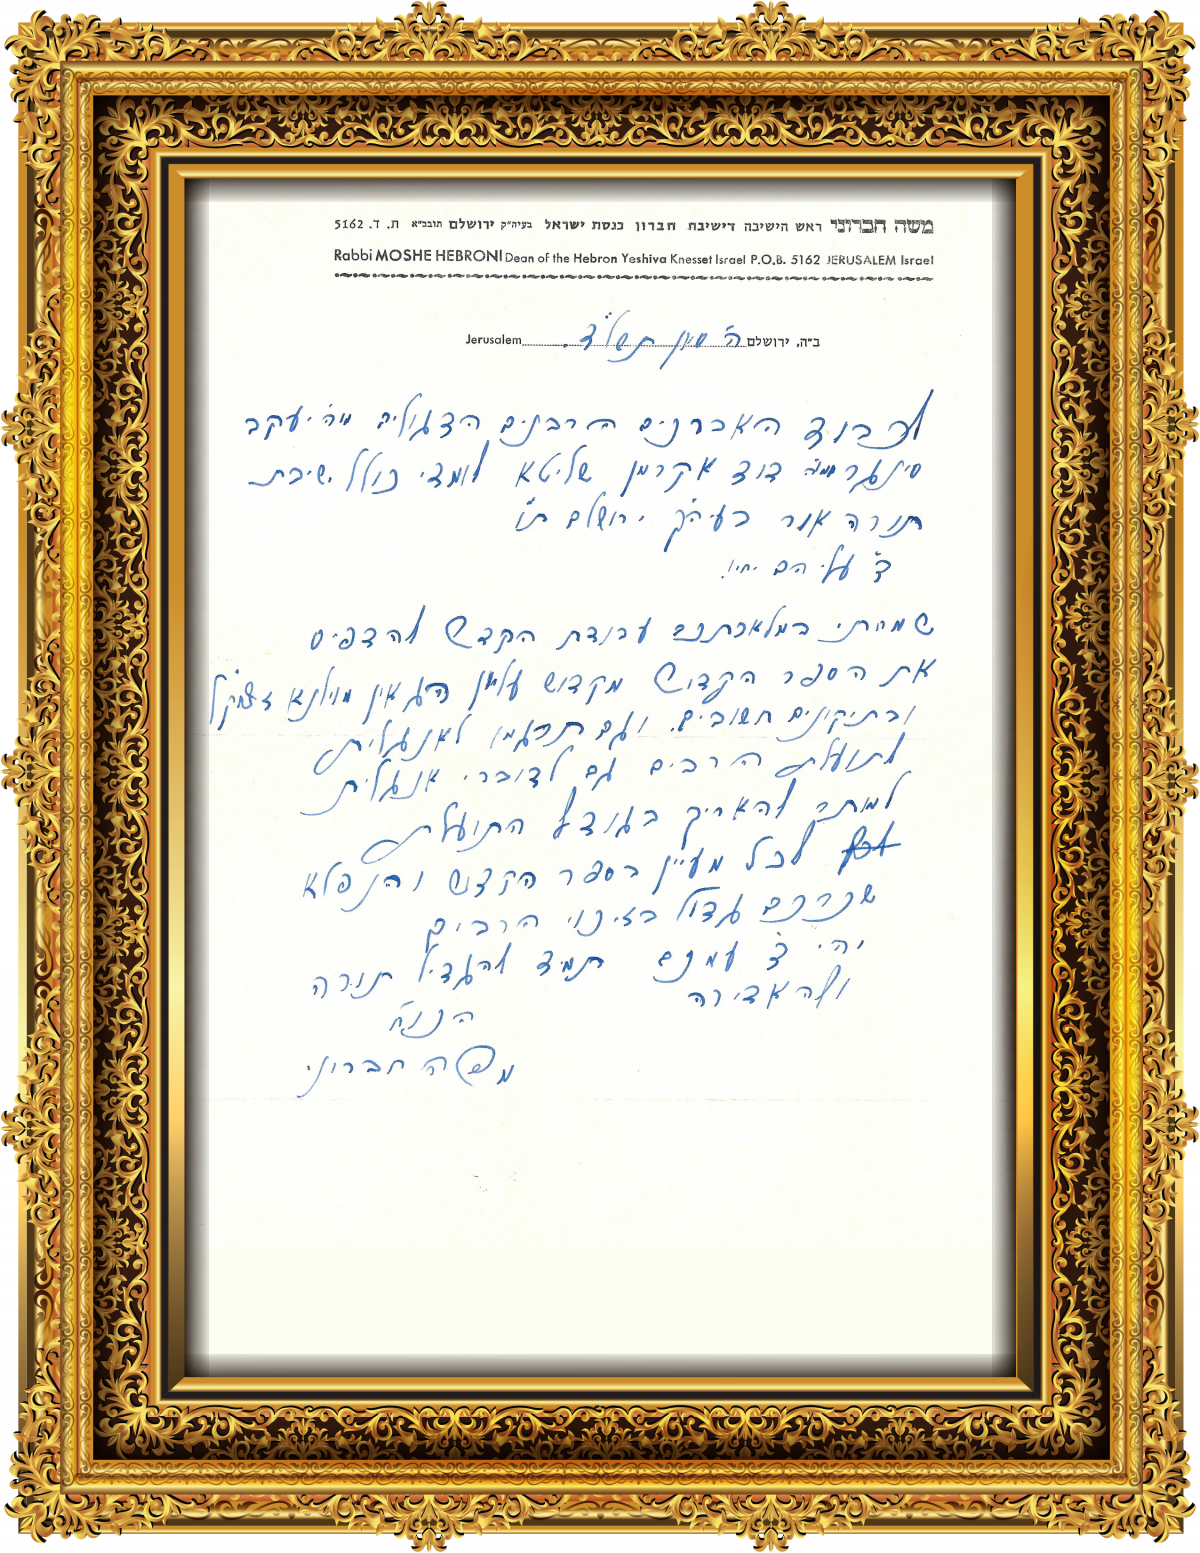 משה חברוני ראש הישיבה דישיבת חברון כנסת ישראל בעיה"ק ירושלם תובב"א ת. ד. 5162
Rabbi MOSHE HEBRONI Dean of the Hebron Yeshiva Knesset Israel P.O.B. 5162 JERUSALEM Israel
ב"ה, ירושלם ה' סיון תשל"ד. Jerusalem
לכבוד האברכים הרבנים הדגולים יעקב
סינגר דוד אקרמן שליטא לומדי כולל ישיבת
תורה אור בעיה"ק ירושלם ת"ו
ד' עליהם יחיו.
שמחתי במלאכתכם עבודת הקדש להדפיס
את הספר הקדוש מקדוש עליון הגאון מוילנא זצוק"ל
ובתיקונים חשובים. וגם תרגמו לאנגלית
לתועלת הרבים גם לדוברי אנגלית
למותר להאריך בגודל התועלת
לכל מעיין בספר הקדוש והנפלא
שכרכם גדול בזיכוי הרבים
יהי ד' עמכם תמיד להגדיל תורה
ולהאדירה
משה חברוני